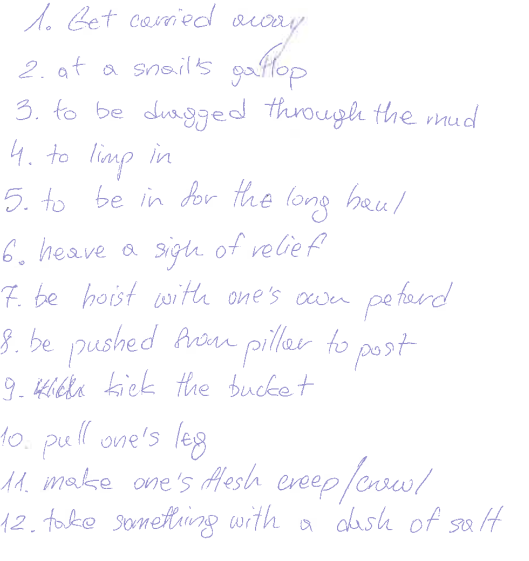 1. Get carried away
2. at a snail's gallop
3. to be dragged through the mud
4. to limp in
5. to be in for the long haul
6. heave a sigh of relief
7. be hoist with one's own petard
8. be pushed from pillar to post
9. kick the bucket
10. pull one's leg
11. make one's flesh creep/crawl
12. take something with a dash of salt